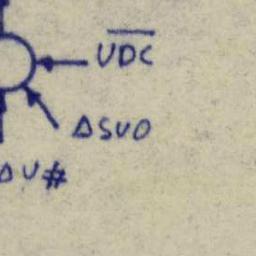 U̅D̅C̅
ΔSUO
ΔU#